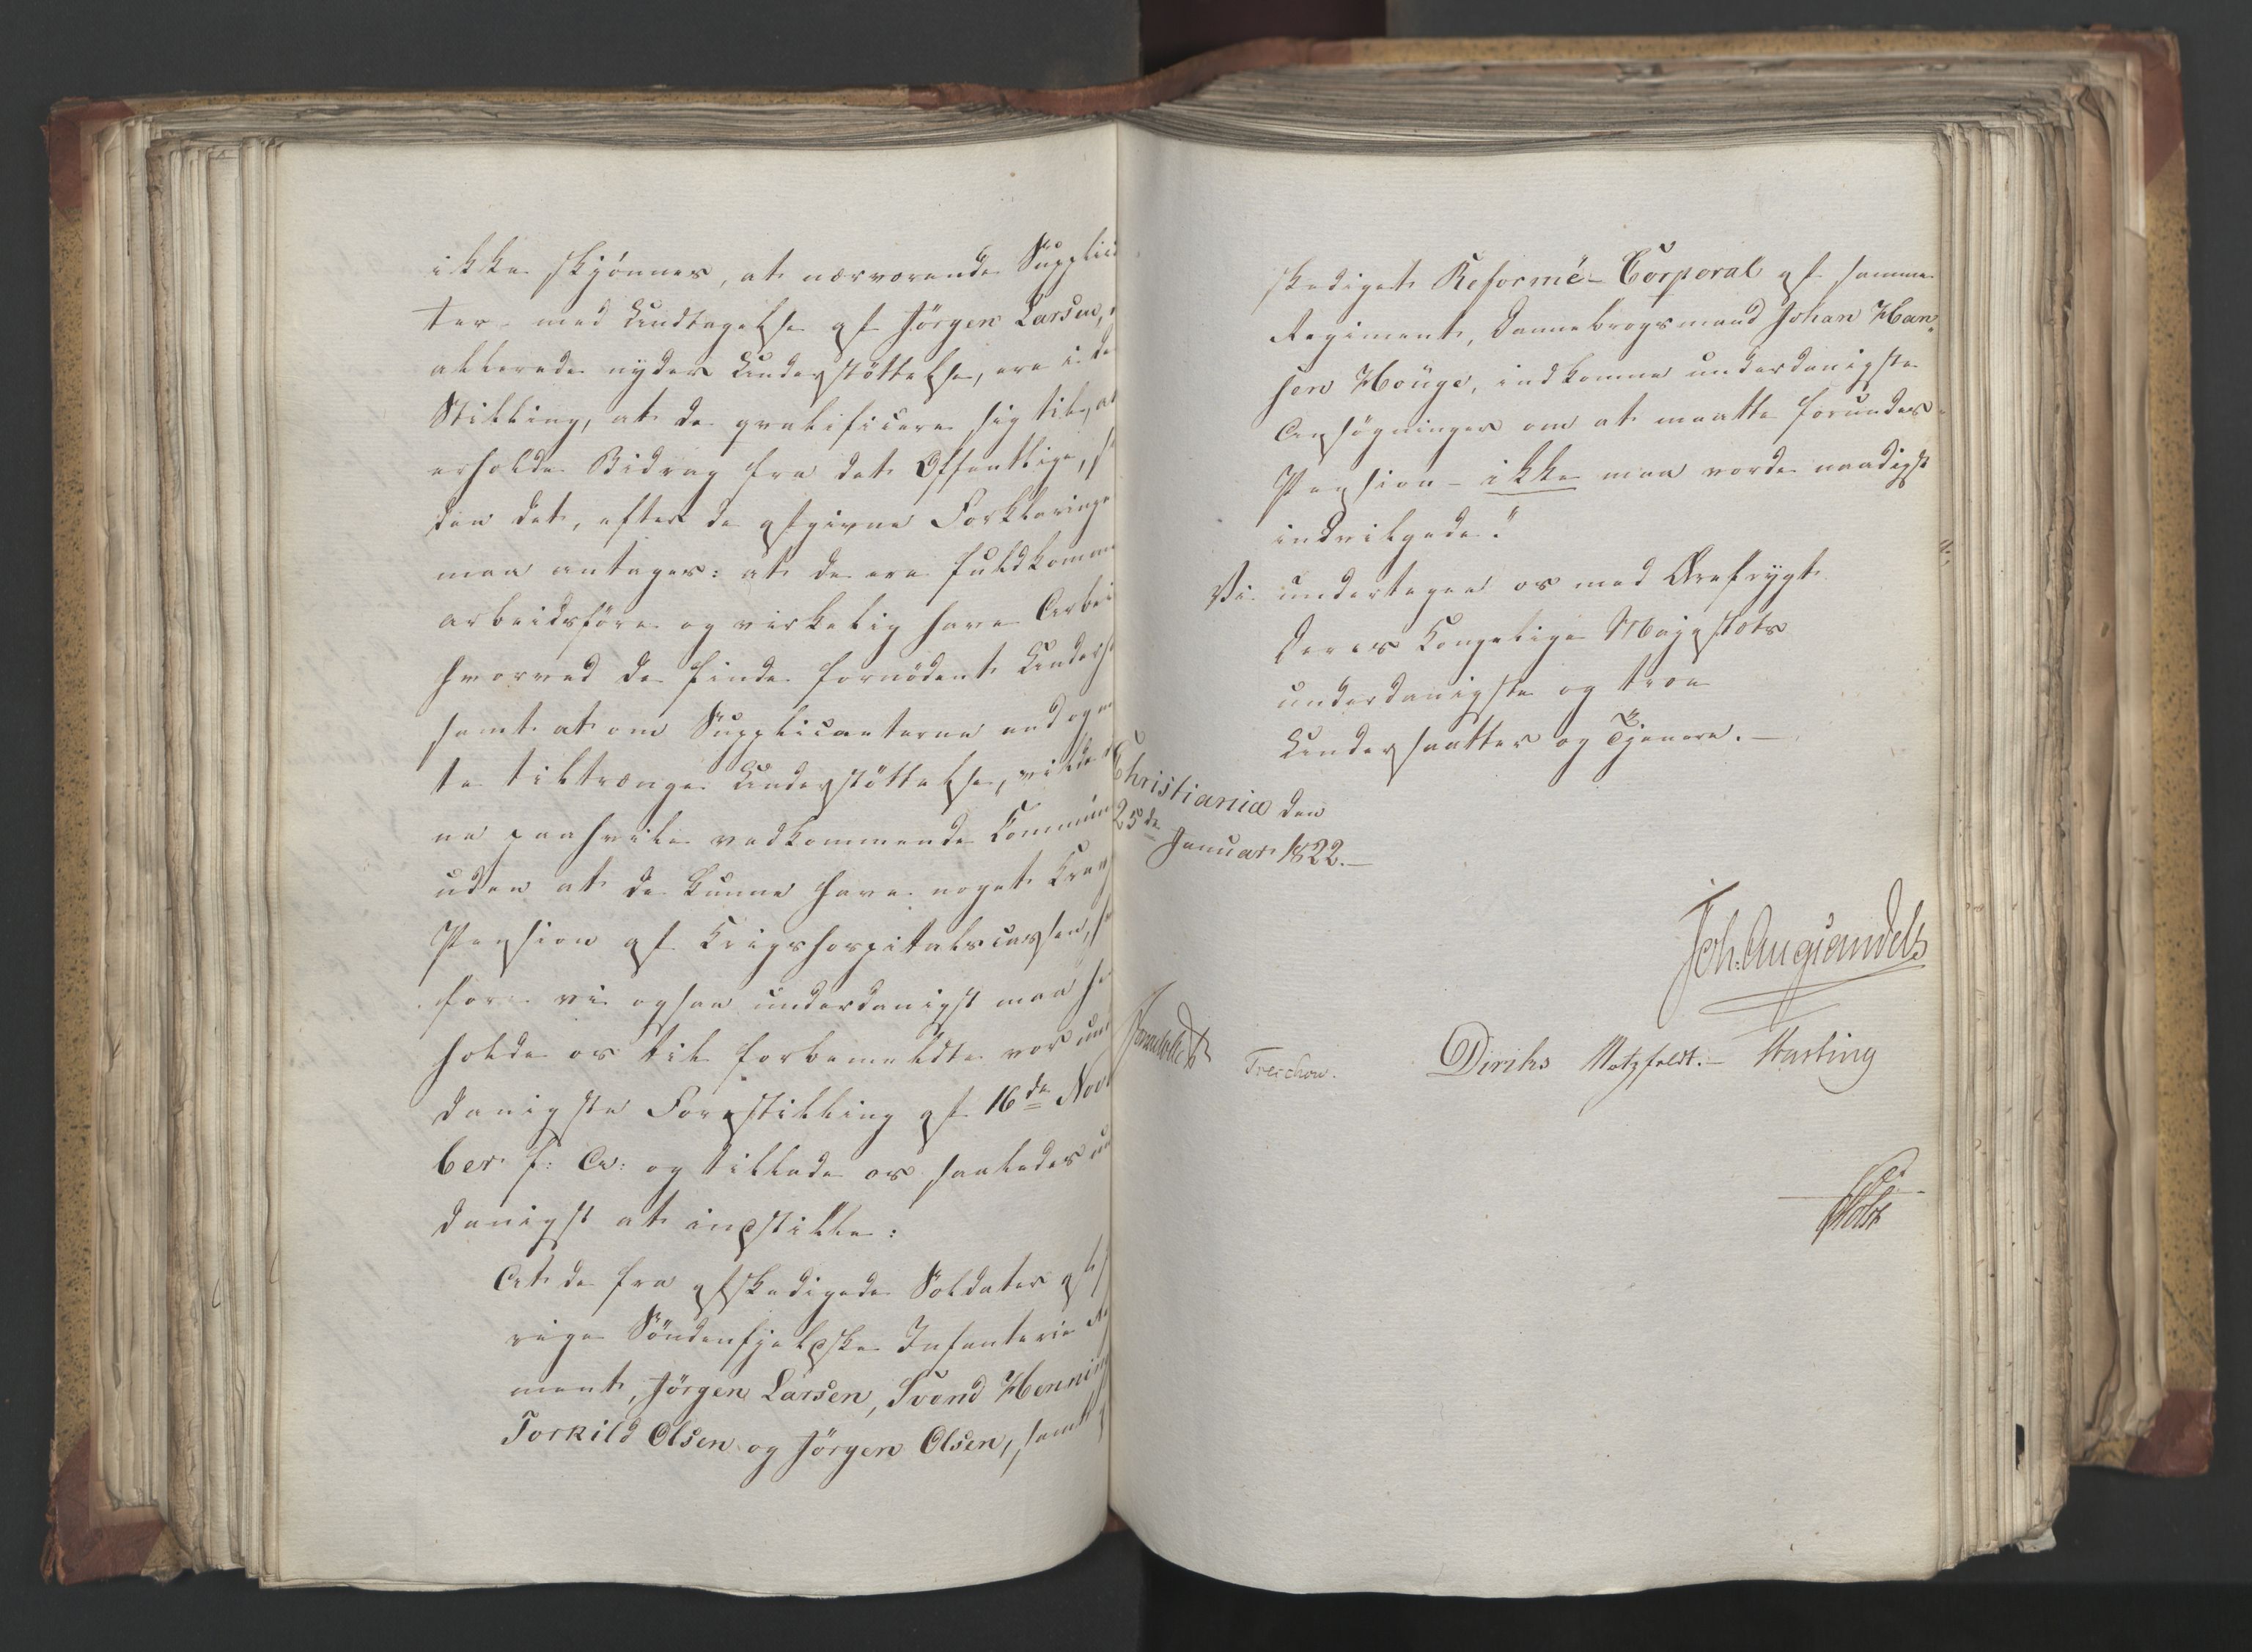 ikke skjønnes, at nærværende Supplic
ter - med Undtagelse af Jörgen Larsen,
allerede nyder Understöttelse, ere i de
Stilling, at de qvalificere sig til, at
erholde Bidrag fra det Offentlige, s
den det, efter de afgivne Forklaringe
maa antages: at de ere fuldkomme
arbeidsföre og virkelig have Arbei
hvorved de finde fornödent Underh
samt at om Supplicanterne endog m
te tiltrænge Understöttelse, vilde
ne paahvile vedkommende Commun
uden at de kunne have noget Krav
Pension af Krigshospitalscassen, h
fore vi ogsaa underdanigst maa he
holde os til forbemeldte vor und
danigste Forestilling af 16de Nov
ber f: A: og tillade os saaledes un
danigst at indstille:
At de fra afskedigede Soldater af f
rige Söndenfjeldske Infanterie Re
ment, Jörgen Larsen, Svend Henning
Torkild Olsen og Jörgen Olsen, samt
skediget Reformé-Corporal af samme
Regiment, Dannebrogsmand Johan Han
sen Houge, indkomne underdanigste
Ansögninger om at maatte forundes
Pension - ikke maa vorde naadigst
indvilgede."
Vi undertegne os med Ærefrygt
Deres Kongelige Majestæts
underdanigste og troe
Undersaatter og Tjenere. -
Christiania den
25de Januar 1822. -
Joh: Aug Sandels
Sommerhielm Treschow. Diriks Motzfeldt. - Fasting
Holst